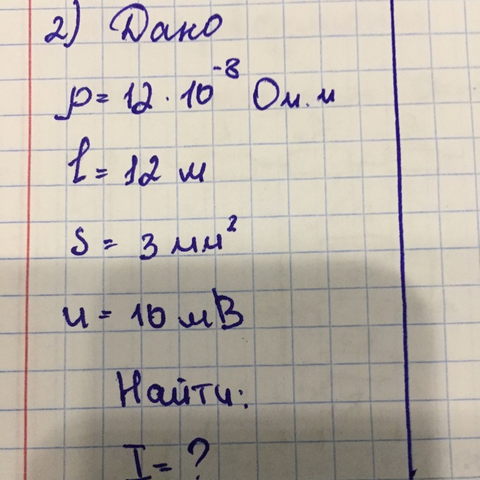 2) Дано
ρ = 12 · 10⁻⁸ Ом.м
l = 12 м
S = 3 мм²
u = 10 мВ
Найти:
I = ?